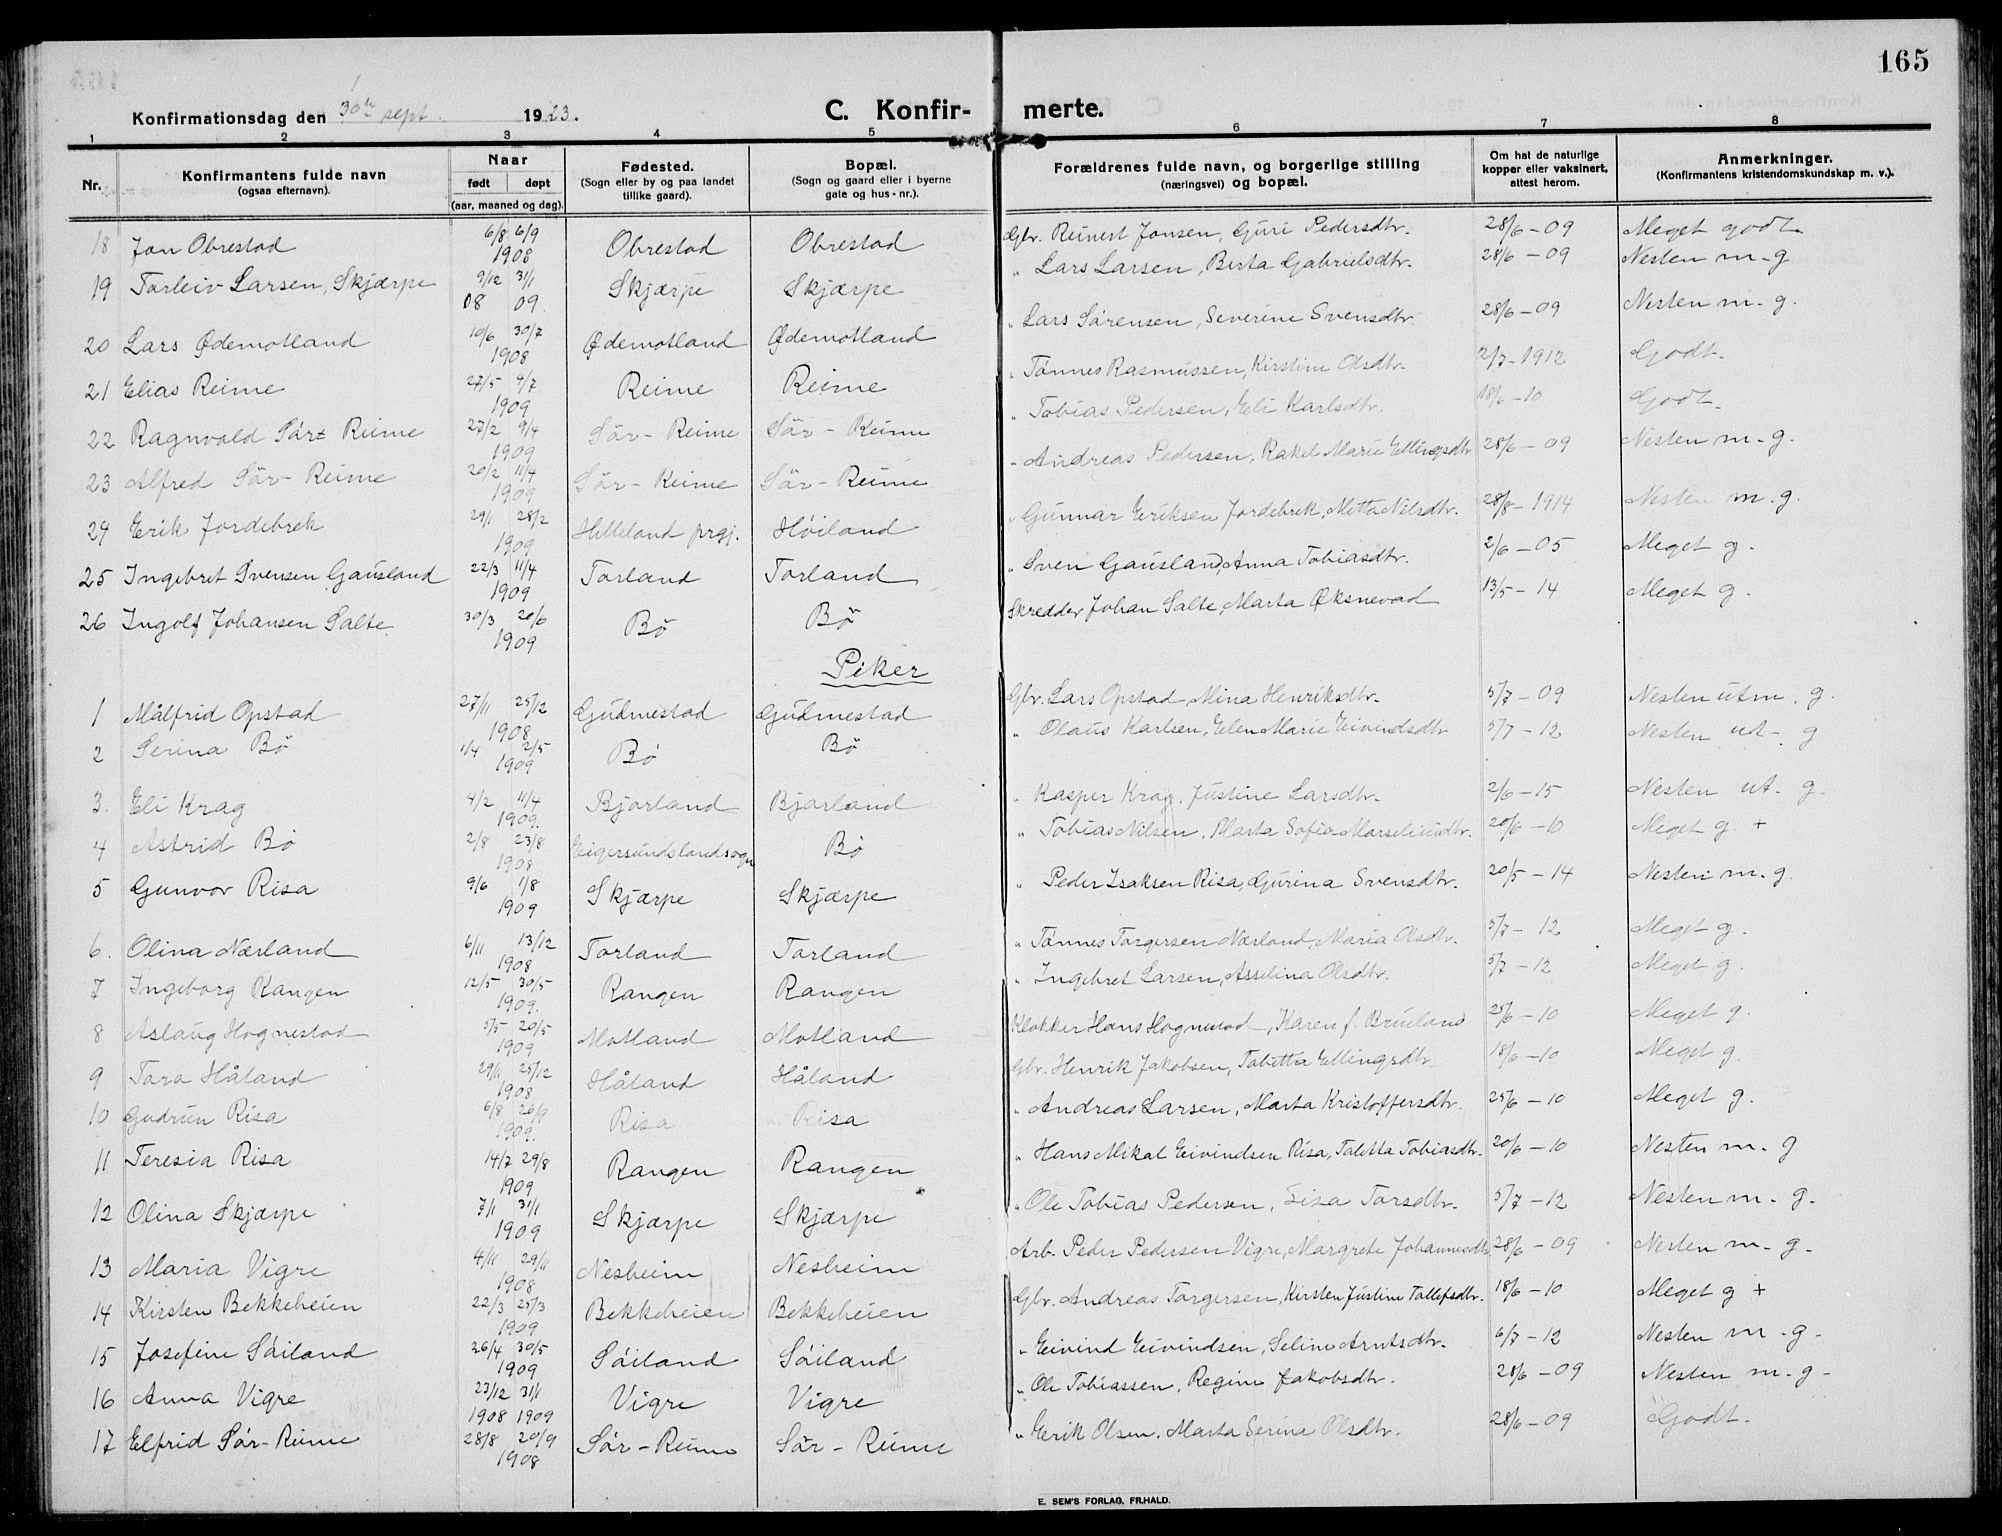 165
Konfirmationsdag den 30te sept. 1923. C. Konfirmerte.
1 2 3 4 5 6 7 8
Nr. Konfirmantens fulde navn (ogsaa efternavn). Naar født døpt (aar, maaned og dag). Fødested. (Sogn eller by og paa landet tillike gaard). Bopæl. (Sogn og gaard eller i byerne gate og hus-nr.). Forældrenes fulde navn, og borgerlige stilling (næringsvei) og bopæl. Om hat de naturlige kopper eller vaksinert, attest herom. Anmerkninger. (Konfirmantens kristendomskundskap m. v.).
18 Jon Obrestad 6/8 6/9 1908 Obrestad Obrestad Gbr. Reinert Jonsen, Guri Pedersdtr. 28/6-09 Meget godt
19 Torleiv Larsen Skjærpe 9/12 08 31/1 09 Skjærpe Skjærpe " Lars Larsen, Berta Gabrielsdtr. 28/6-09 Nesten m-g
20 Lars Ødemotland 10/6 30/7 1908 Ødemotland Ødemotland " Lars Sørensen, Severine Svensdtr. 28/6-09 Nesten m-g.
21 Elias Reime 27/5 4/7 1909 Reime Reime " Tønnes Rasmussen, Kirstine Olsdtr. 2/7-1912 Godt.
22 Ragnvald Sör-Reime 27/2 9/4 1909 Sör-Reime Sör-Reime " Tobias Pedersen, Eli Karlsdtr. 18/6-10 Godt.
23 Alfred Sör-Reime 20/2 11/4 1909 Sör-Reime Sör-Reime " Andreas Pedersen, Rakel Marie Ellingsdtr 28/6-09 Nesten m-g.
24 Erik Jordebrek 29/1 28/2 1909 Helleland prgj. Höiland " Gunnar Eriksen Jordebrek, Metta Nilsdtr. 28/8-1914 Nesten m.g.
25 Ingebret Svensen Gausland 22/3 11/4 1909 Torland Torland " Sven Gausland, Anna Tobiasdtr. 2/6-05 Meget g.
26 Ingolf Johansen Salte 30/3 20/6 1909 Bö Bö Skredder Johan Salte, Marta Øksnevad 13/5-14 Meget g.
Piker
1 Målfrid Opstad 27/11 25/12 1908 Gudmestad Gudmestad Gbr. Lars Opstad, Mina Henriksdtr. 5/7-09 Nesten utm. g.
2 Serina Bö 1/4 2/5 1909 Bö Bö " Olaus Karlsen, Elen Marie Eivindsdtr 5/7-12 Nesten ut- g
3. Eli Krag 4/2 11/4 1909. Bjorland Bjorland " Kasper Krag, Justine Larsdtr. 2/6-15 Nesten ut. g.
4 Astrid Bö 2/8 23/8 1908 Eigersundslandsogn Bö " Tobias Nilsen, Marta Sofia Marseliusdtr. 20/6-10 Meget g. +
5 Gunvor Risa 9/6 1/8 1909 Skjærpe Skjærpe " Peder Isaksen Risa, Gurina Svensdtr. 20/5-14 Nesten m.g.
6. Olina Nærland 6/11 13/12 1908 Torland Torland " Tönnes Torgersen Nærland, Maria Olsdtr. 5/7-12 Meget g.
7 Ingeborg Rangen 12/5 30/5 1909. Rangen Rangen " Ingebret Larsen, Asselina Olsdtr. 5/7-12 Meget g.
8 Aslaug Hognestad 5/5 20/5 1909 Motland Motland Klokker Hans Hognestad, Karen f. Brueland 25/6-10 Meget g.
9 Tora Håland 29/11 25/12 1908 Håland Håland Gbr. Henrik Jakobsen, Tabetta Ellingsdtr. 18/6-10 Meget g.
10 Gudrun Risa 6/8 26/9 1909. Risa Risa " Andreas Larsen, Marta Kristoffersdtr. 25/6-10 Meget g.
11 Teresia Risa 14/7 29/8 1909 Rangen Rangen " Hans Mikal Eivindsen Risa, Taletta Tobiasdtr. 20/6-10 Nesten m-g
12 Olina Skjærpe 7/1 31/1 1909 Skjærpe Skjærpe " Ole Tobias Pedersen, Lisa Torsdtr. 5/7-12 Nesten m-g.
13 Maria Vigre 4/11 29/11 1908 Nesheim Nesheim Arb. Peder Pedersen Vigre, Margrete Johannesdtr. 28/6-09 Nesten m-g.
14 Kirsten Bekkeheien 22/3 25/3 1909 Bekkeheien Bekkeheien Gbr. Andreas Torgersen, Kirsten Justine Tollefsdtr. 18/6-10 Meget g +
15 Josefine Söiland 26/4 30/5 1909 Söiland Söiland " Eivind Eivindsen, Seline Arntsdtr. 6/7-12 Nesten m-g-
16 Anna Vigre 23/12 1908 31/1 1909 Vigre Vigre " Ole Tobiassen, Regine Jakobsdtr. 28/6-09 Nesten m-g-
17 Elfrid Sör-Reime 28/8 20/9 1908 Sör-Reime Sör-Reime " Erik Olsen, Marta Serina Olsdtr. 28/6-09 Godt.
E. SEM'S FORLAG, FR.HALD.